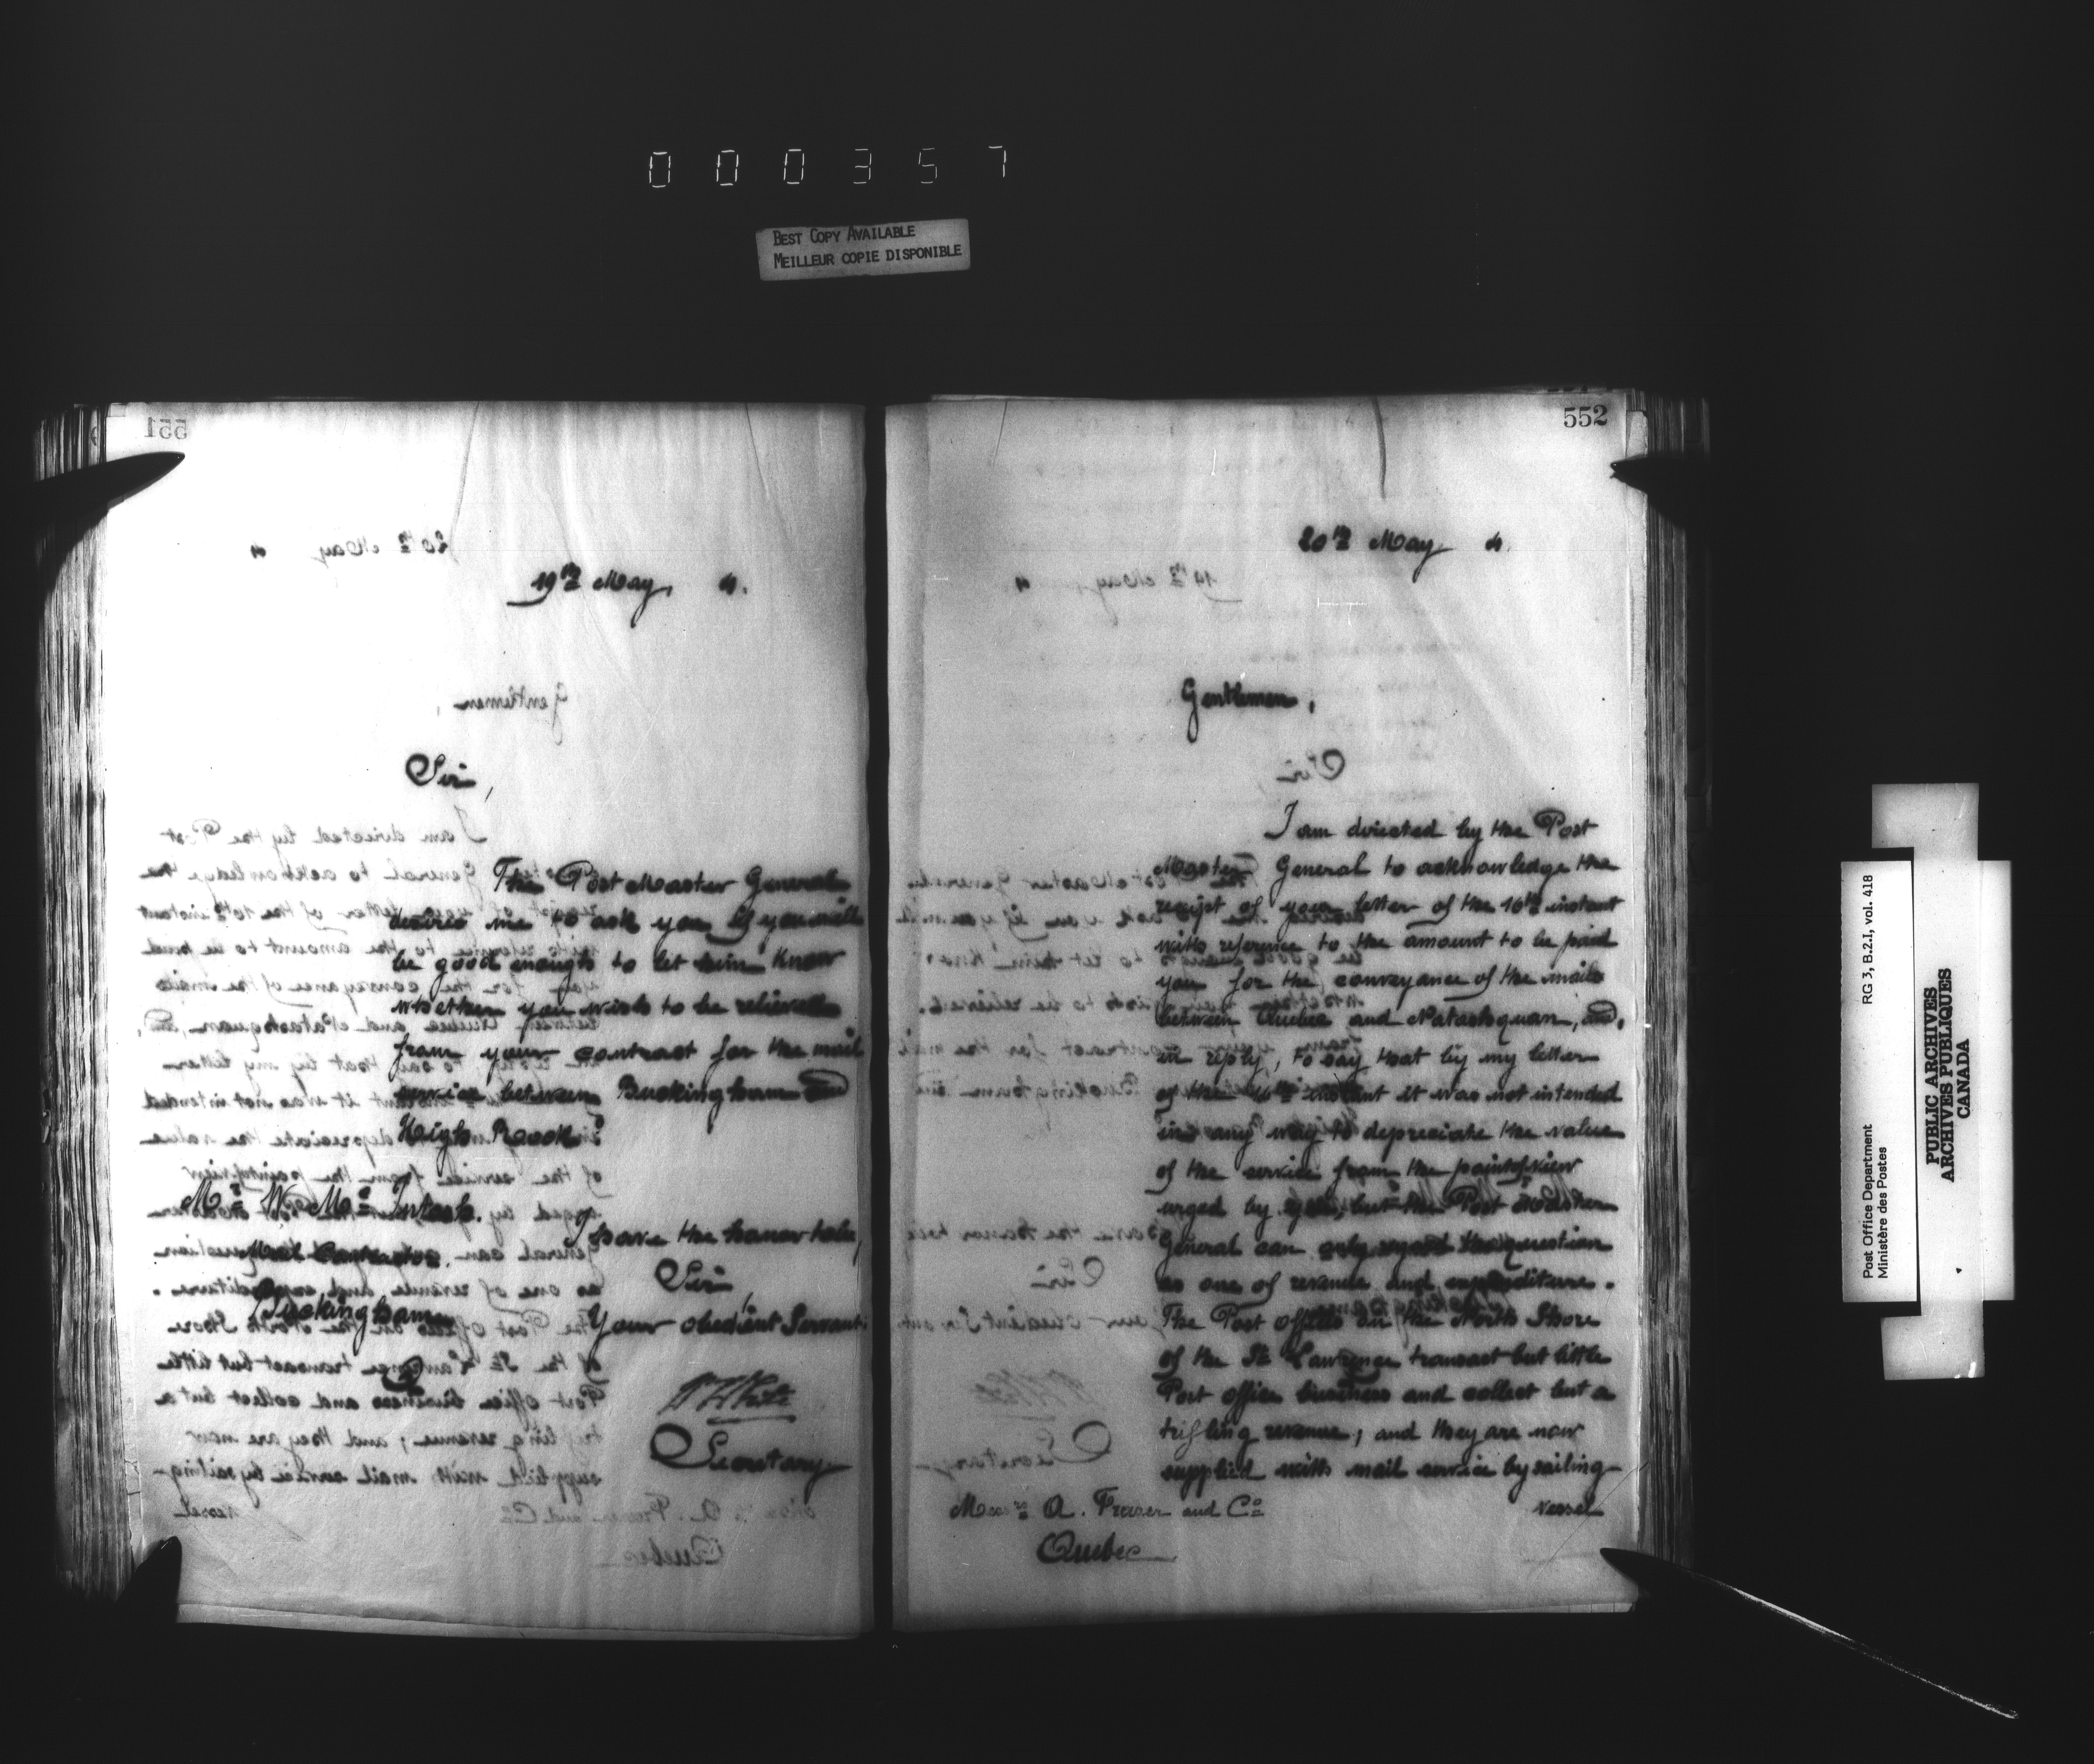 000357
BEST COPY AVAILABLE
MEILLEUR COPIE DISPONIBLE
551
19th May, 4.
Sir,
The Post Master General
desires me to ask you if you will
be good enough to let him know
whether you wish to be relieved
from your contract for the mail
service between Buckingham and
High Rock.
I have the honor to be,
Sir,
Your obedient Servant
Secretary
Mr. W. McIntosh.
Mail Contractor.
Buckingham
552
20th May 4.
Gentlemen,
I am directed by the Post
Master General to acknowledge the
receipt of your letter of the 16th instant
with reference to the amount to be paid
you for the conveyance of the mails
between Quebec and Natashquan, and,
in reply, to say that by my letter
of the instant it was not intended
in any way to depreciate the value
of the service from the point of view
urged by you, but the Post Master
General can only regard the question
as one of revenue and expenditure.
The Post offices on the North Shore
of the St. Lawrence transact but little
Post office business and collect but a
trifling revenue; and they are now
supplied with mail service by sailing
vessel
Messrs A. Fraser and Co
Quebec
Post Office Department
Ministère des Postes
RG 3, B.2.I, vol. 418
PUBLIC ARCHIVES
ARCHIVES PUBLIQUES
CANADA